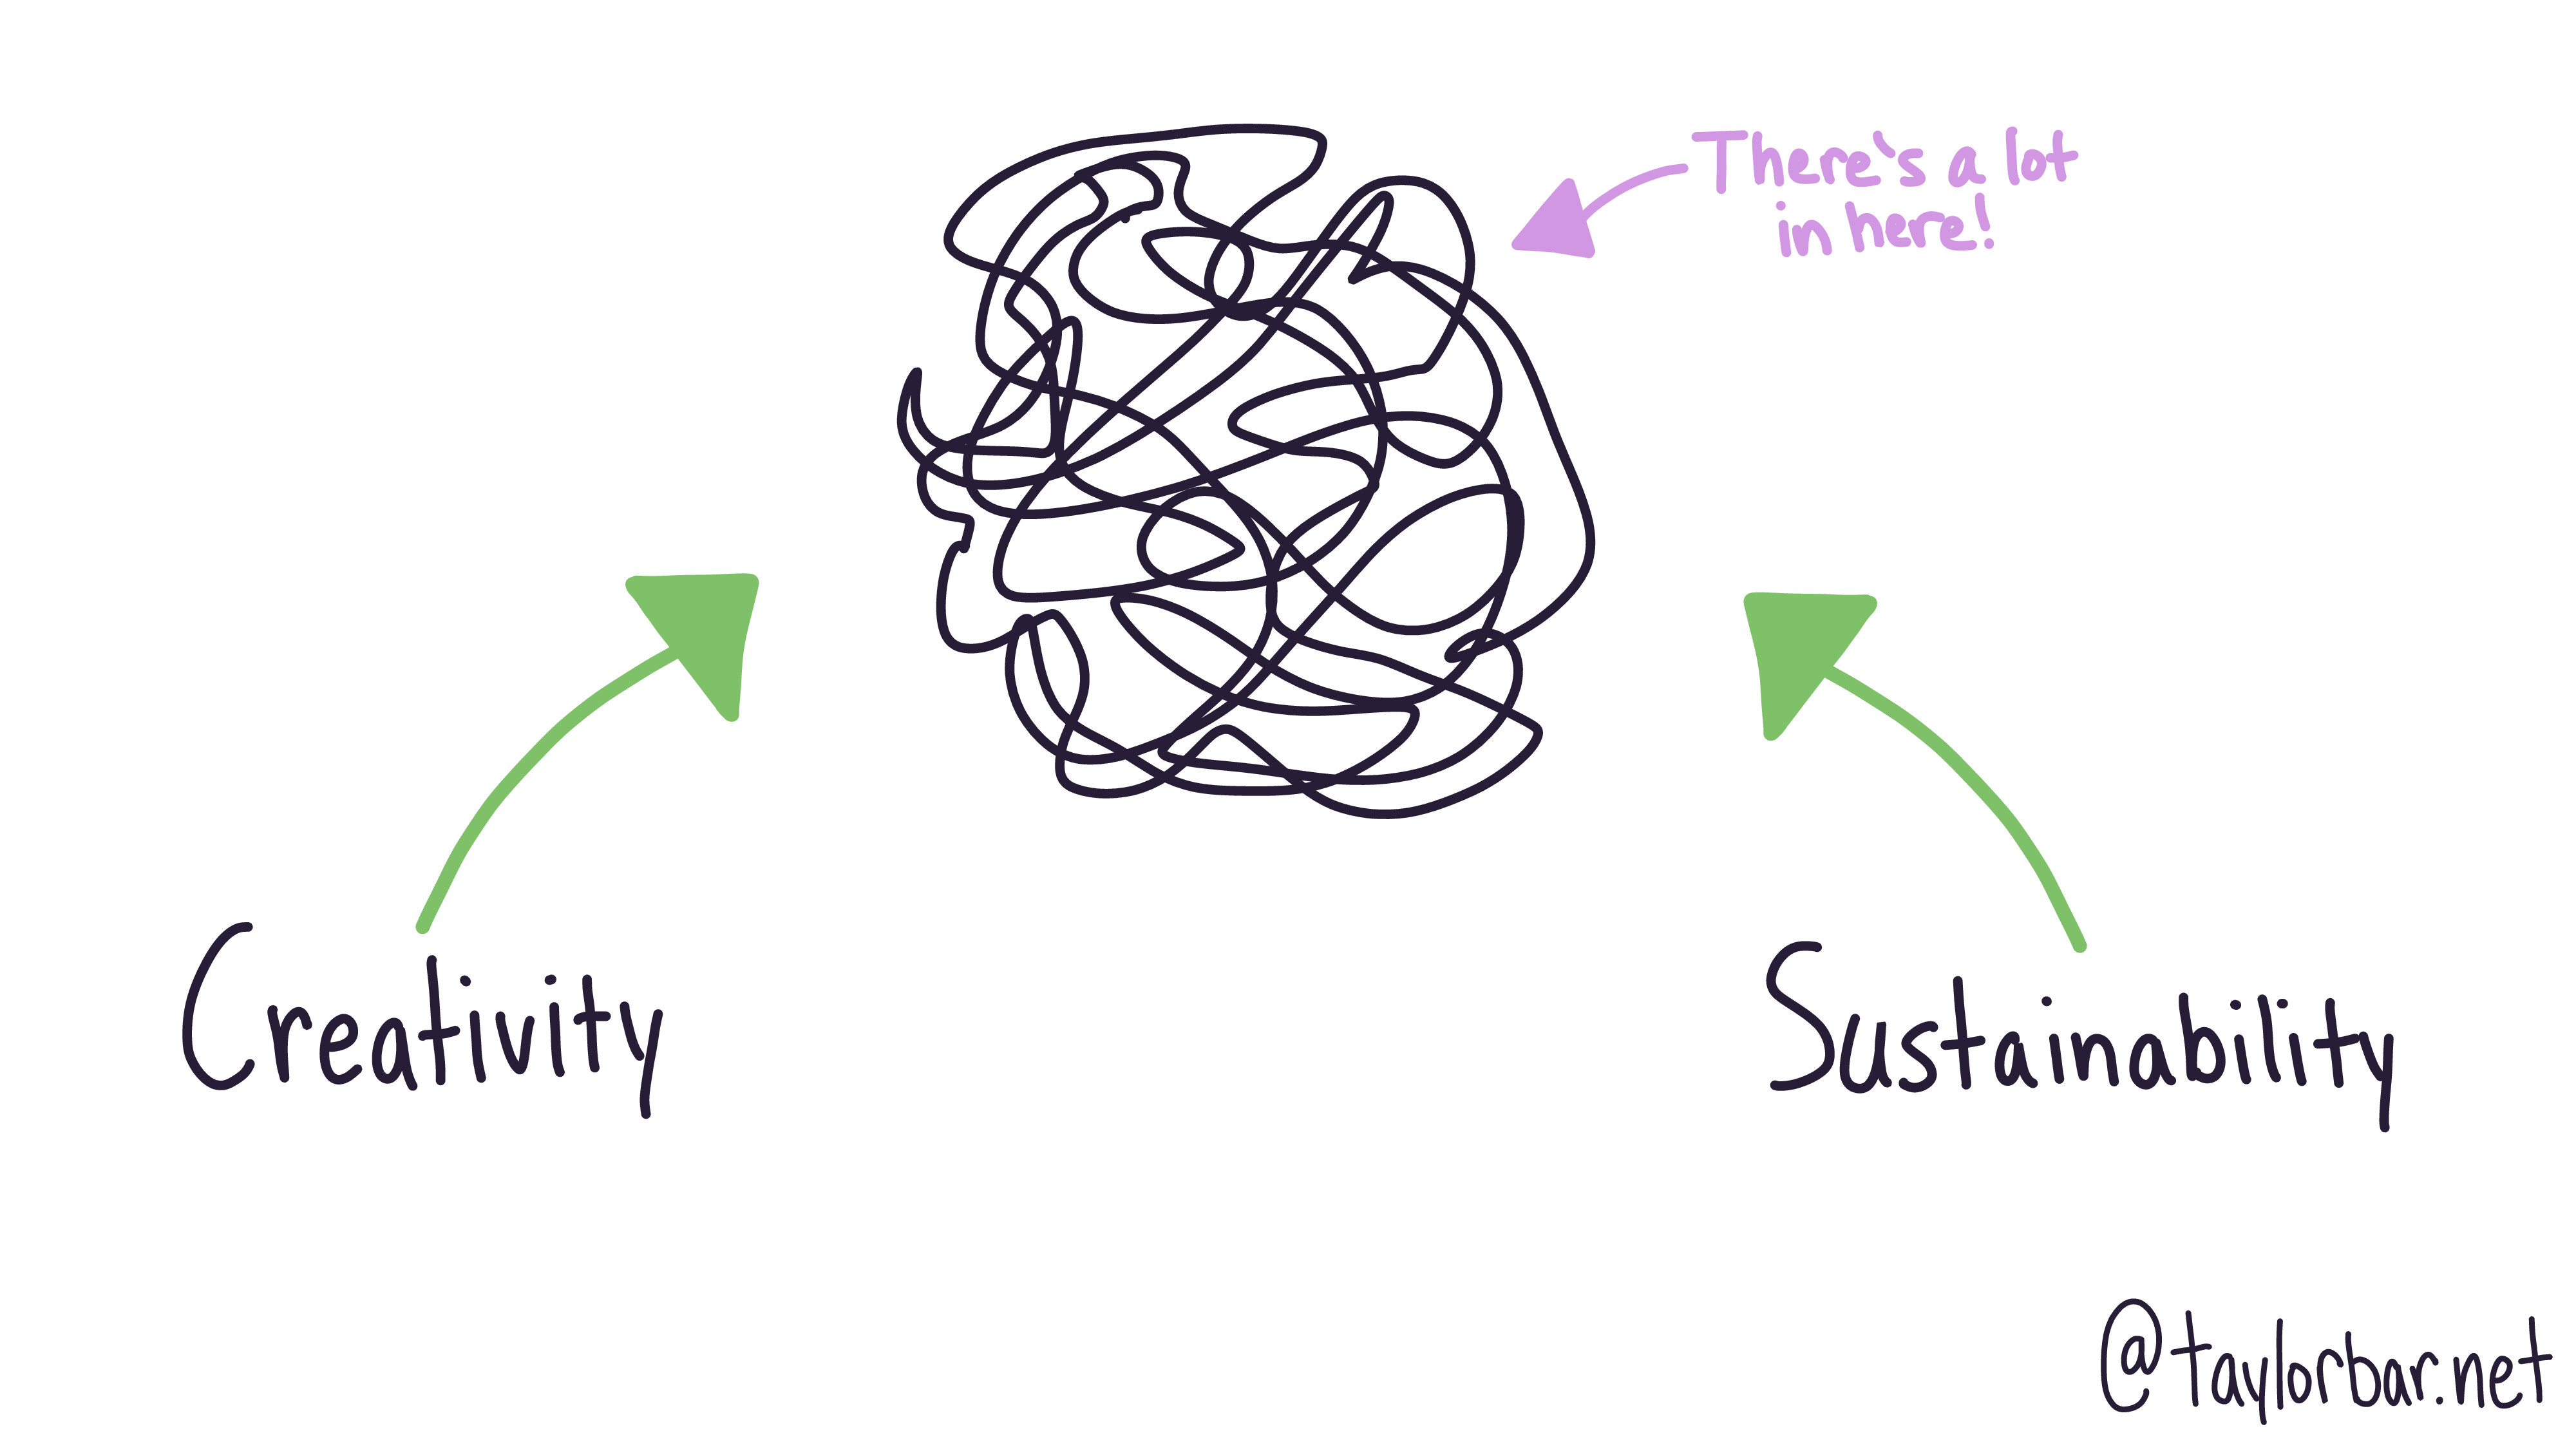 There's a lot
in here!
Creativity
Sustainability
@taylorbar.net